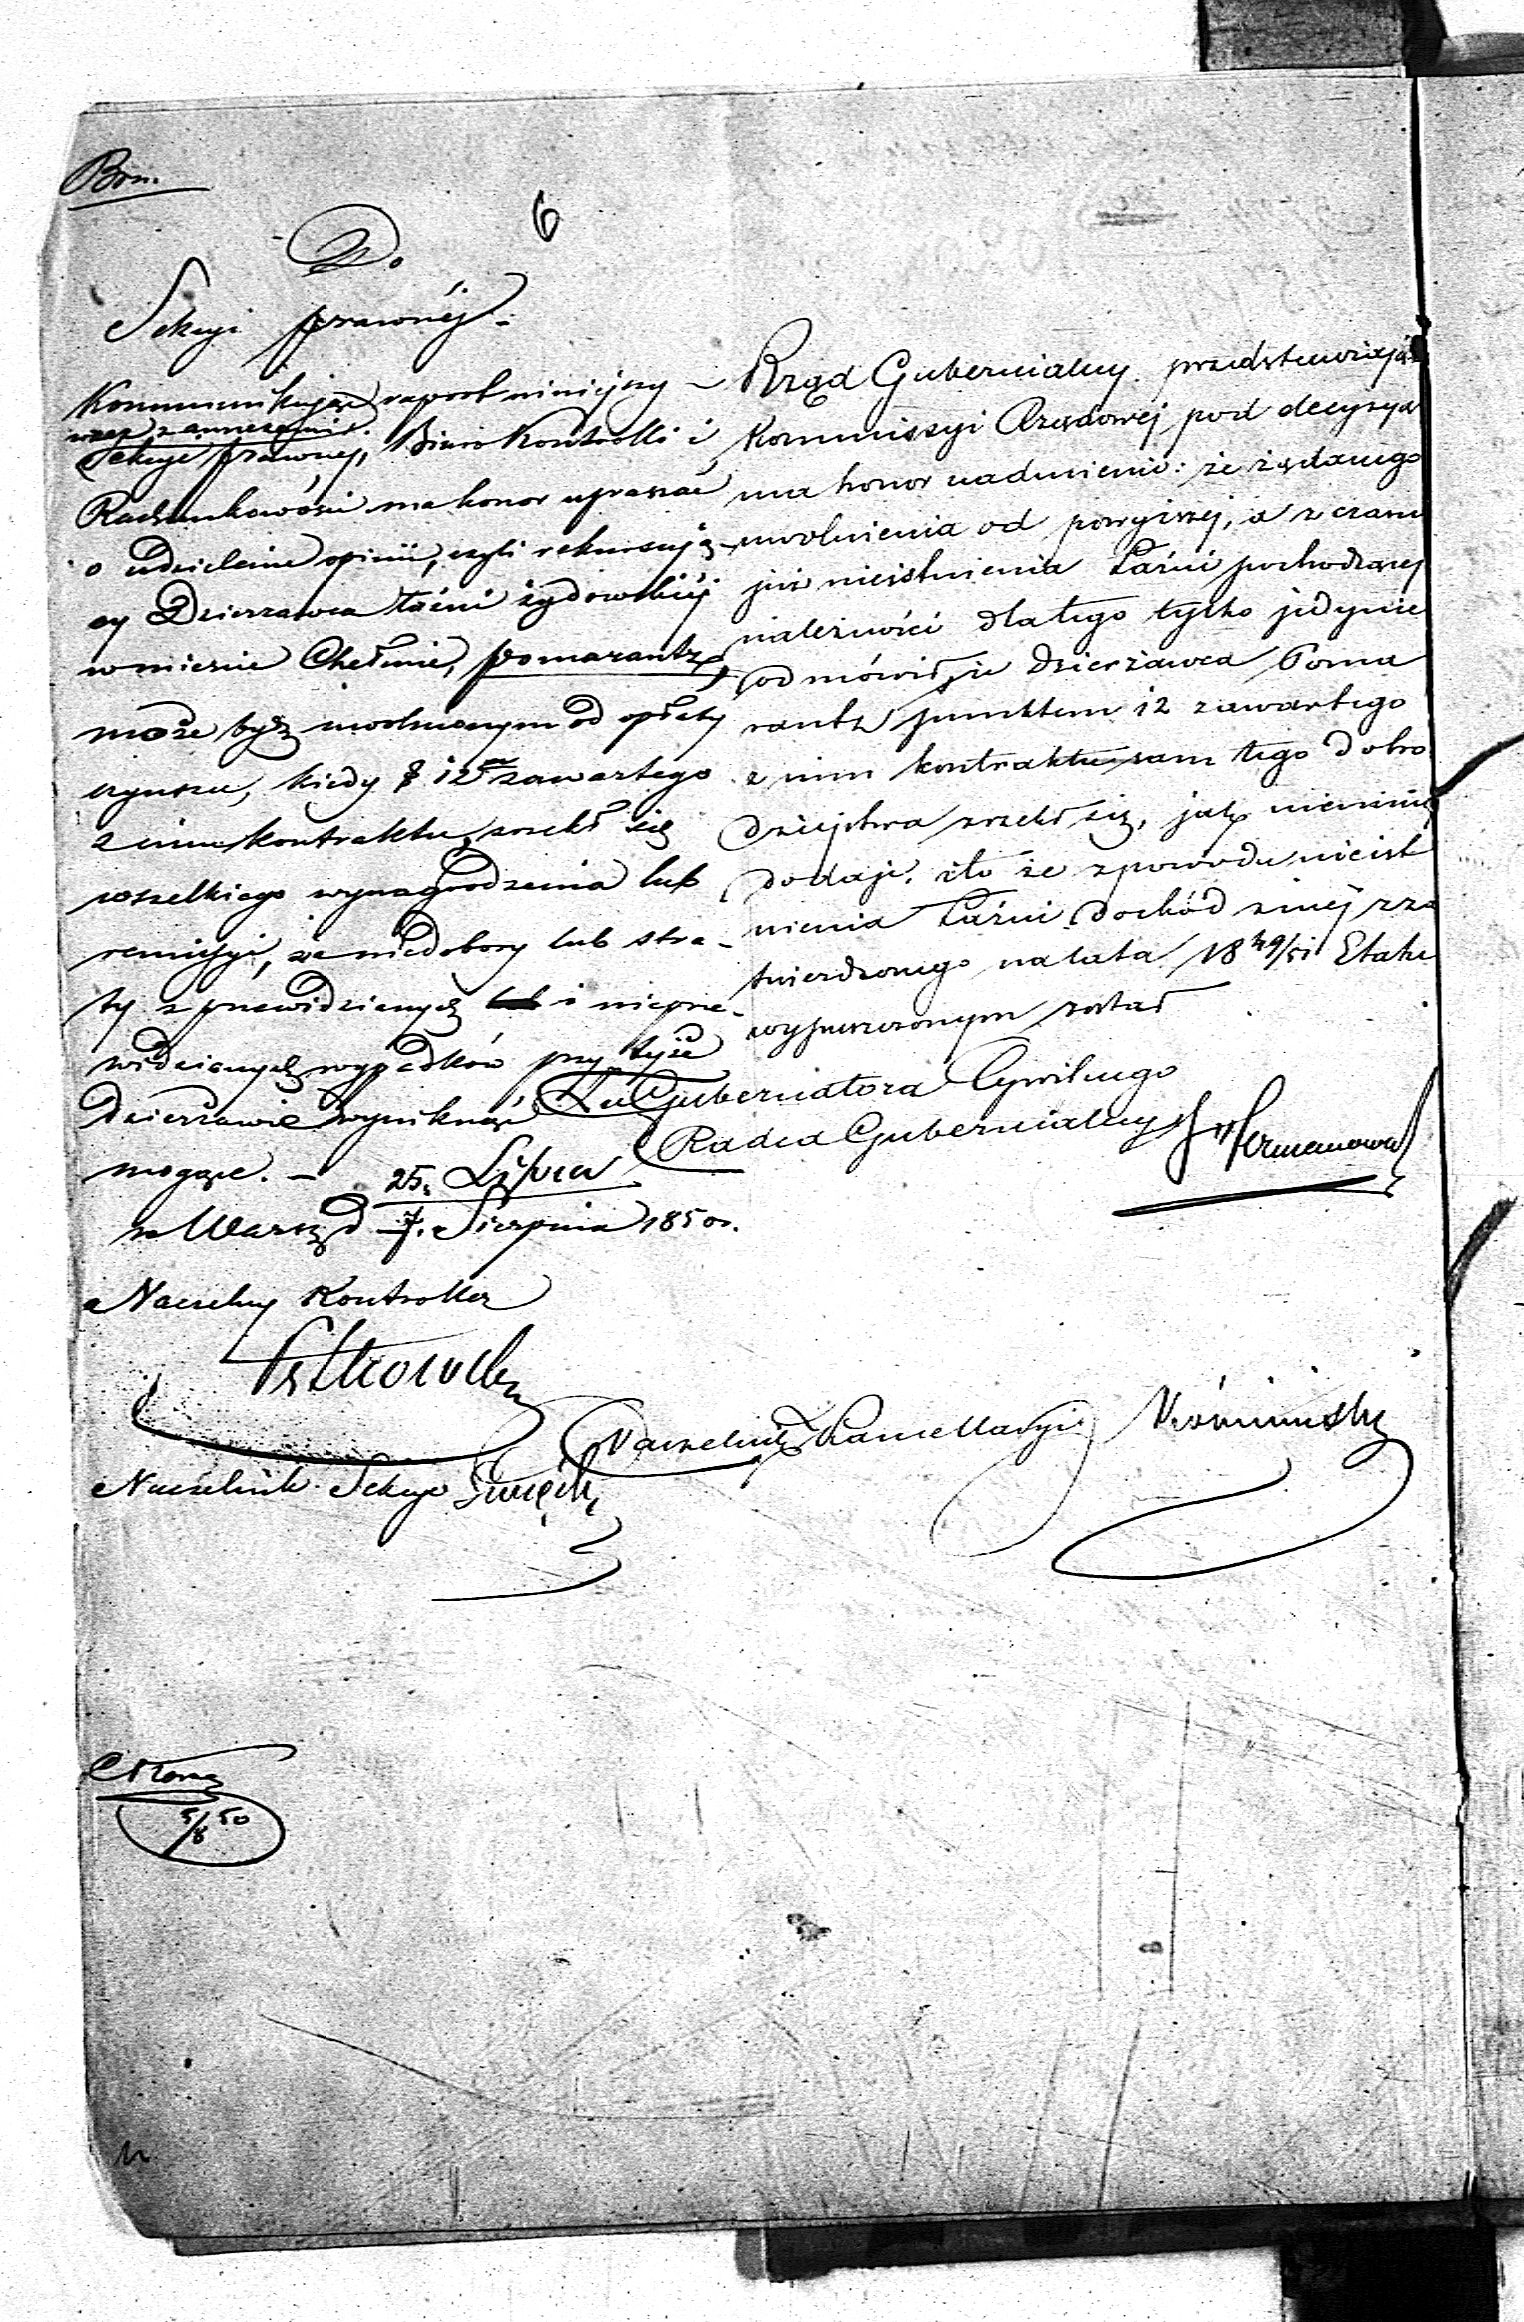 Brn.
6
Do
Sekcyi prawnéj.
Kommunikując rapport niniejszy
wraz z annexami
Sekcyi prawnej, Biuro Kontrolli i
Rachunkowości ma honor upraszać
o udzielenie opinii, czyli rekursują-
cy Dzierżawca łaźni żydowskiéj
w mieście Chełmie, Pomarantz,
może bydź uwolnionym od opłaty
czynszu, kiedy § 12m zawartego
z nim kontraktu, zrzekł się
wszelkiego wynagrodzenia lub
remissyi, za niedobory lub stra-
ty z przewidzianych i nieprze-
widzianych wypadków przy tejże
Dzierżawie wyniknąć
mogące. –
w Warsz. d 25. Lipca
7. Sierpnia 1850 r.
Naczelny Kontroller
Naczelnik Sekcyi
Rząd Gubernialny przedstawiając
Kommissyi Rządowej pod decyzyą
ma honor nadmienić: że żądanego
uwolnienia od powyższej, a z czasu
już nieistnienia Łaźni pochodzącej
należności dlatego tylko jedynie
odmówił, że dzierżawca Poma
rantz punktem 12 zawartego
z nim kontraktu sam tego dobro
dziejstwa zrzekł się, jak niemniej
dodaje, iż to że z powodu nieist
nienia Łaźni dochód z niej z za
twierdzonego na lata 18 49/51 Etatu
wypuszczonym został
Za Gubernatora Cywilnego
Radca Gubernialny J. Hermanowa
Naczelnik Kancellaryi
5/8 50